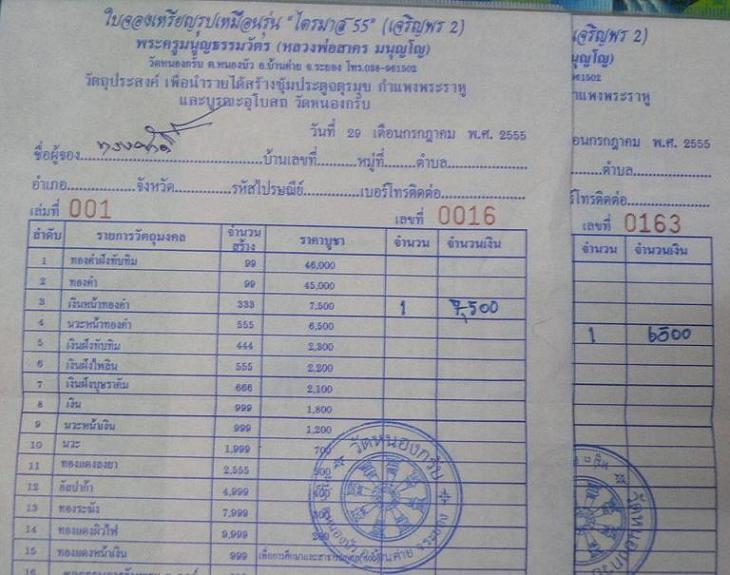 ใบจองเหรียญรูปเหมือนรุ่น "ไตรมาส 55" (เจริญพร 2)
พระครูมนูญธรรมวัตร (หลวงพ่อสาคร มนุญโญ)
วัดหนองกรับ ต.หนองบัว อ.บ้านค่าย จ.ระยอง โทร.038-961502
วัตถุประสงค์ เพื่อนำรายได้สร้างซุ้มประตูจตุรมุข กำแพงพระราหู
และบูรณะอุโบสถ วัดหนองกรับ
วันที่ 29 เดือนกรกฎาคม พ.ศ. 2555
ชื่อผู้จอง..........บ้านเลขที่..........หมู่ที่..........ตำบล..........
อำเภอ..........จังหวัด..........รหัสไปรษณีย์..........เบอร์โทรติดต่อ..........
เล่มที่ 001 เลขที่ 0016
ลำดับ รายการวัตถุมงคล จำนวนสร้าง ราคาบูชา จำนวน จำนวนเงิน
1 ทองคำฝังทับทิม 99 46,000
2 ทองคำ 99 45,000
3 เงินหน้าทองคำ 333 7,500 1 7,500
4 นวะหน้าทองคำ 555 6,500
5 เงินฝังทับทิม 444 2,300
6 เงินฝังไพลิน 555 2,200
7 เงินฝังบุษราคัม 666 2,100
8 เงิน 999 1,800
9 นวะหน้าเงิน 999 1,200
10 นวะ 1,999 700
11 ทองแดงลงยา 2,555
12 อัลปาก้า 4,999
13 ทองระฆัง 7,999
14 ทองแดงผิวไฟ 9,999
15 ทองแดงหน้าเงิน 999
16
วัดหนองกรับ
(เจริญพร 2)
มนุญโญ)
961502
กำแพงพระราหู
เดือนกรกฎาคม พ.ศ. 2555
ตำบล..........
เบอร์โทรติดต่อ..........
เลขที่ 0163
จำนวน จำนวนเงิน
1 6500
วัดหนองกรับ